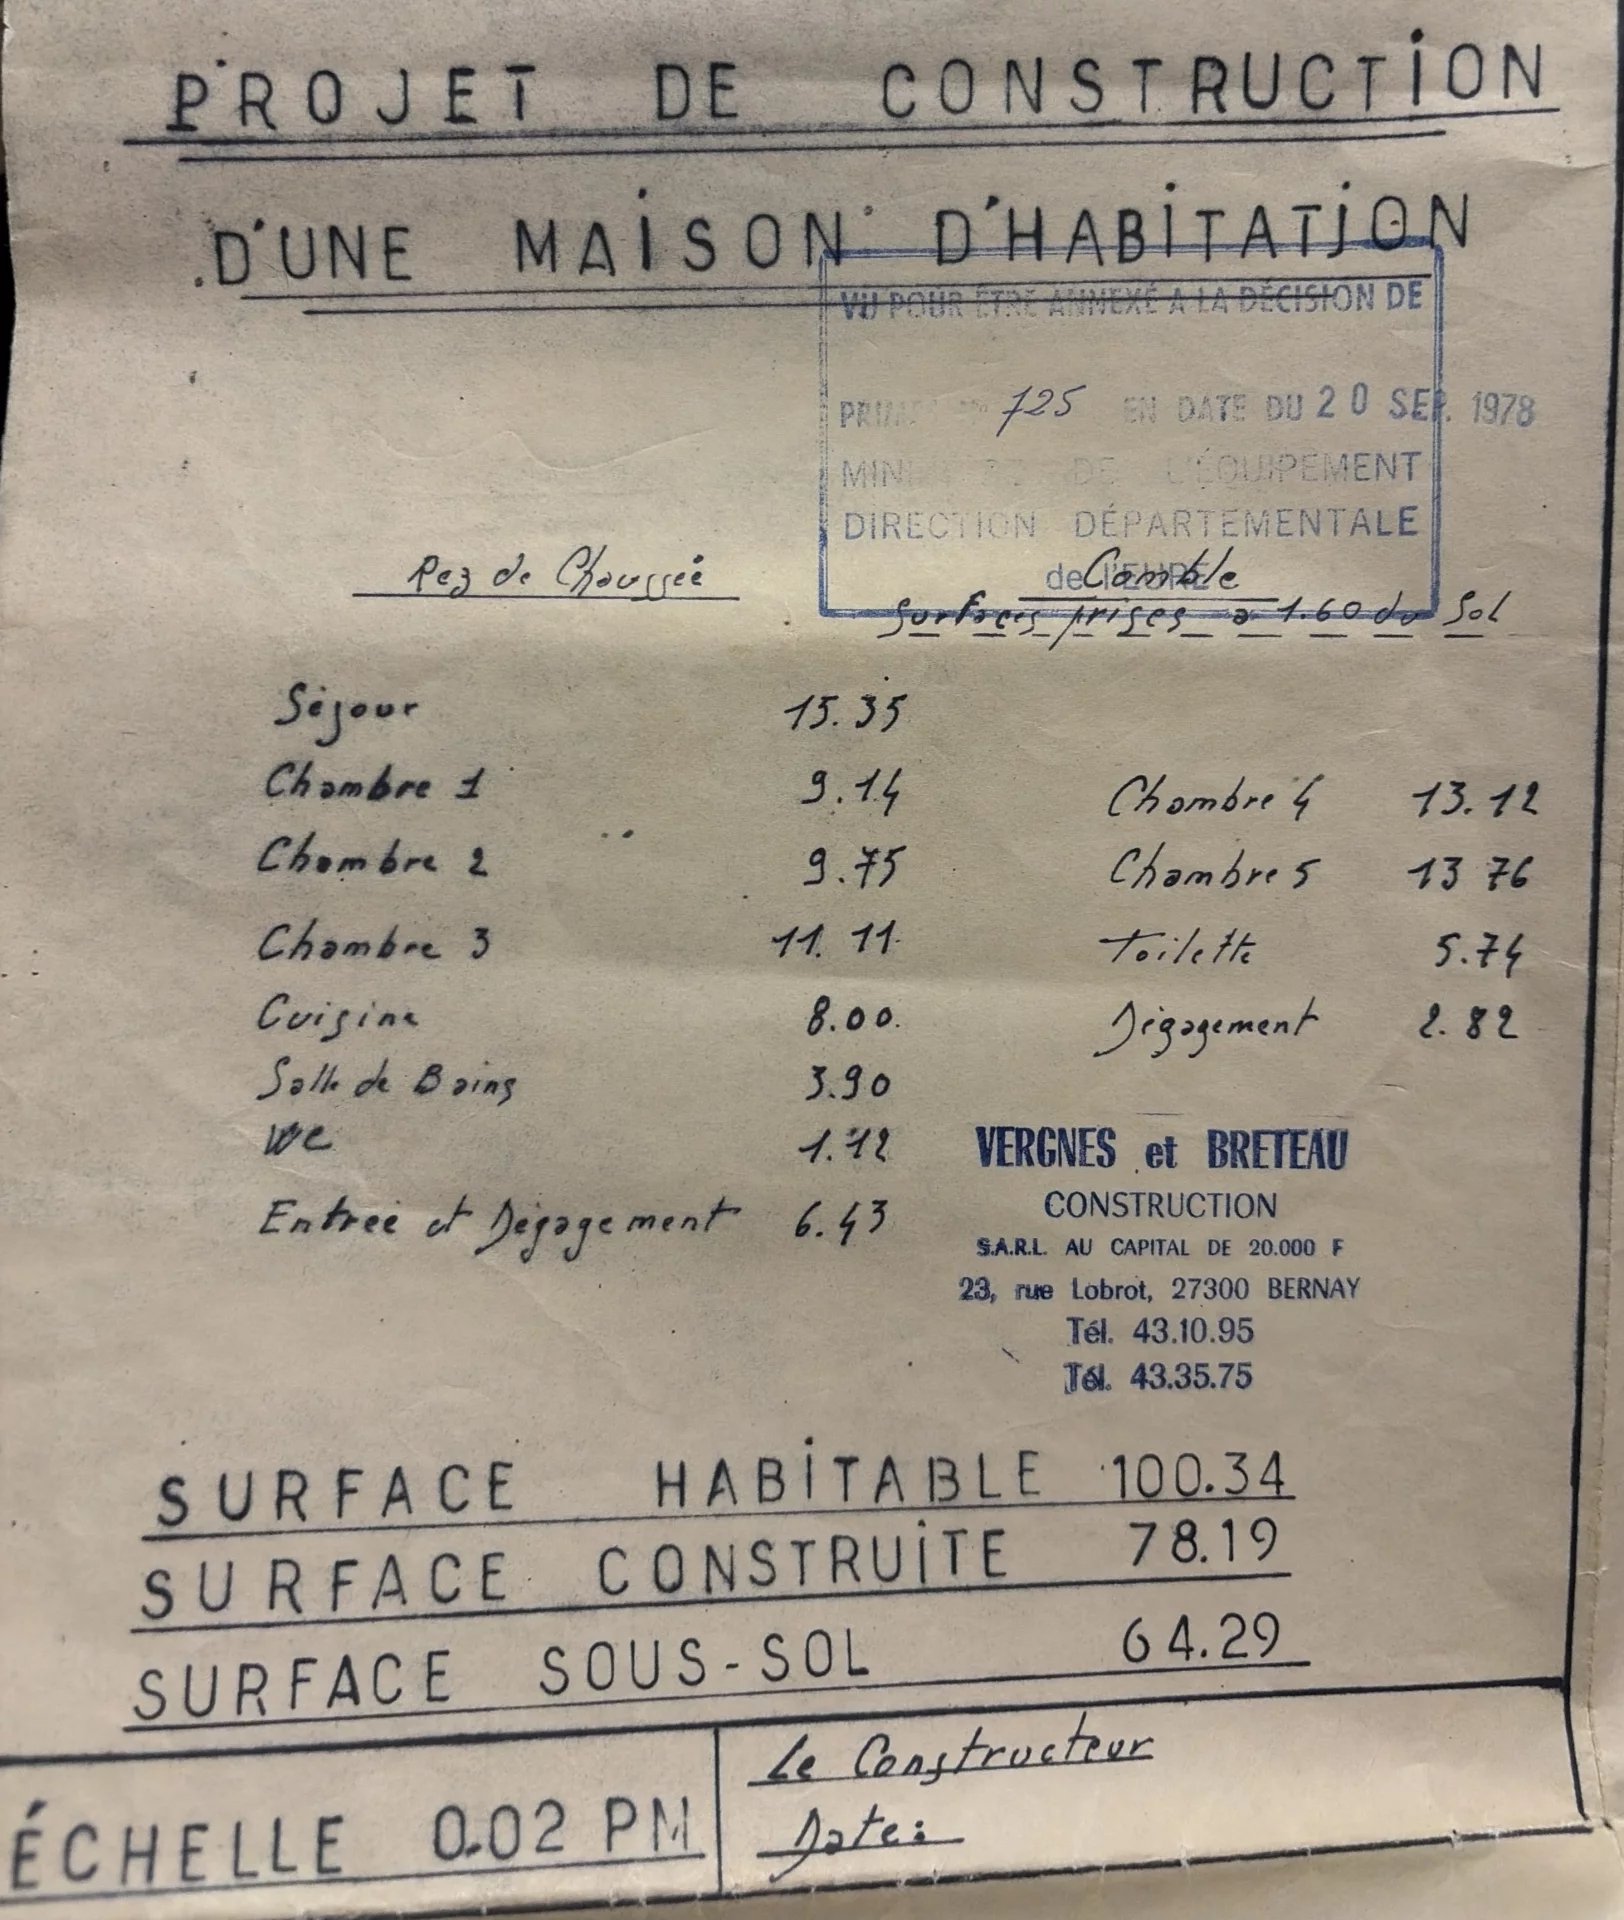 PROJET DE CONSTRUCTION
D'UNE MAISON D'HABITATION
VU POUR ÊTRE ANNEXÉ A LA DÉCISION DE
725 EN DATE DU 20 SEP. 1978
DE L'ÉQUIPEMENT
DIRECTION DÉPARTEMENTALE
de l'EURE
Rez de Chaussée
Comble
Surfaces prises a 1.60 du Sol
Séjour 15.35
Chambre 1 9.14
Chambre 2 9.75
Chambre 3 11.11
Cuisine 8.00
Salle de Bains 3.90
WC 1.12
Entrée et Dégagement 6.43
Chambre 4 13.12
Chambre 5 13 76
Toilette 5.74
Dégagement 2.82
VERGNES et BRETEAU
CONSTRUCTION
S.A.R.L. AU CAPITAL DE 20.000 F
23, rue Lobrot, 27300 BERNAY
Tél. 43.10.95
Tél. 43.35.75
SURFACE HABITABLE 100.34
SURFACE CONSTRUITE 78.19
SURFACE SOUS-SOL 64.29
ÉCHELLE 0.02 PM
Le Constructeur
Date: